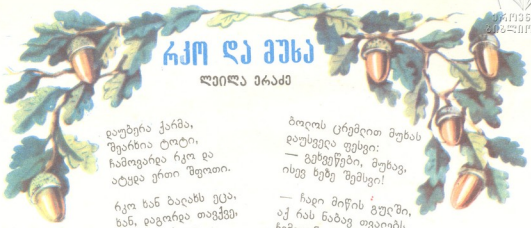 რკო და მუხა
ლეილა ერაძე
დაუბერა ქარმა,
შეარხია ტოტი,
ჩამოვარდა რკო და
ატყდა ერთი შფოთი.
რკო ხან ბალახს ეცა,
ხან, დაგორდა თავქვე,
ბოლოს ცრემლით მუხას
დაუსველა ფესვი:
— გეხვეწები, მუხავ,
ისევ ხეზე შემსვი!
— ჩადი მიწის გულში,
აქ რას ნაბავ თვალებს